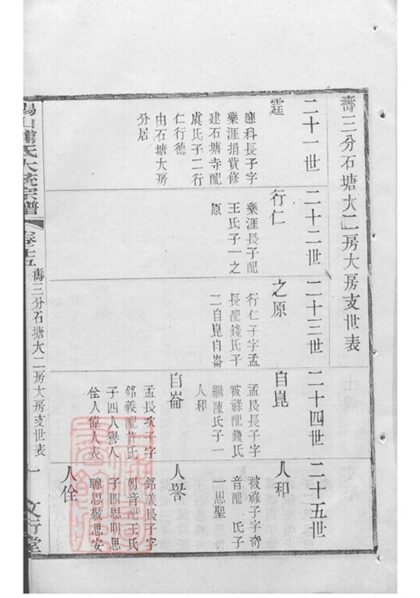 壽三分石塘大二房大房支世表
二十一世
二十二世
二十三世
二十四世
二十五世
霆
應科長子字
樂涯捐貲修
建石塘寺配
虞氏子二行
仁行德
由石塘大房
分居
行仁
樂涯長子配
王氏子一之
原
之原
行仁子字孟
長配錢氏子
二自崑自崙
自崑
孟長長子字
配錢氏
繼陳氏子一
人和
自崙
孟長次子字
銘義配許氏
子四人譽人
佺人倚人表
人和
子字奇
音配 氏子
一思聖
人譽
銘義長子字
音配王氏
子四思明思
聰思敬思安
人佺
氏大統宗譜
壽三分石塘大二房大房支世表
一
文行堂